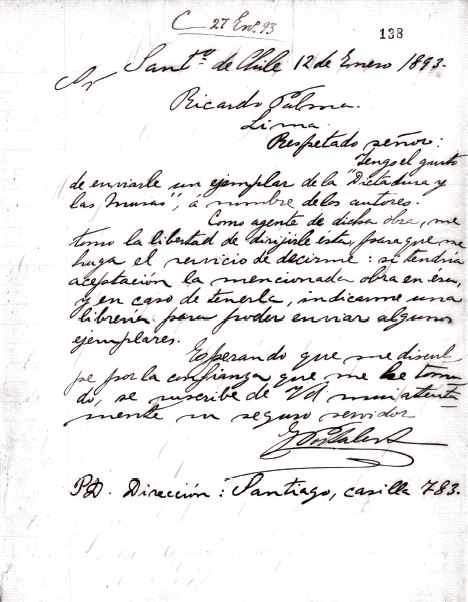 C 27 En. 93
138
Santo de Chile 12 de Enero 1893.
Sr
Ricardo Palma.
Lima.
Respetado señor:
Tengo el gusto
de enviarle un ejemplar de la "Dictadura y
las Musas", a nombre de los autores.
Como agente de dicha obra, me
tomo la libertad de dirijirle ésta, para que me
haga el servicio de decirme: si tendria
aceptación la mencionada obra en ésa,
y en caso de tenerla, indicarme una
libreria para poder enviar algunos
ejemplares.
Esperando que me discul
pe por la confianza que me he toma
do, se suscribe de Vd mui atenta
mente su seguro servidor
PD. Dirección: Santiago, casilla 783.